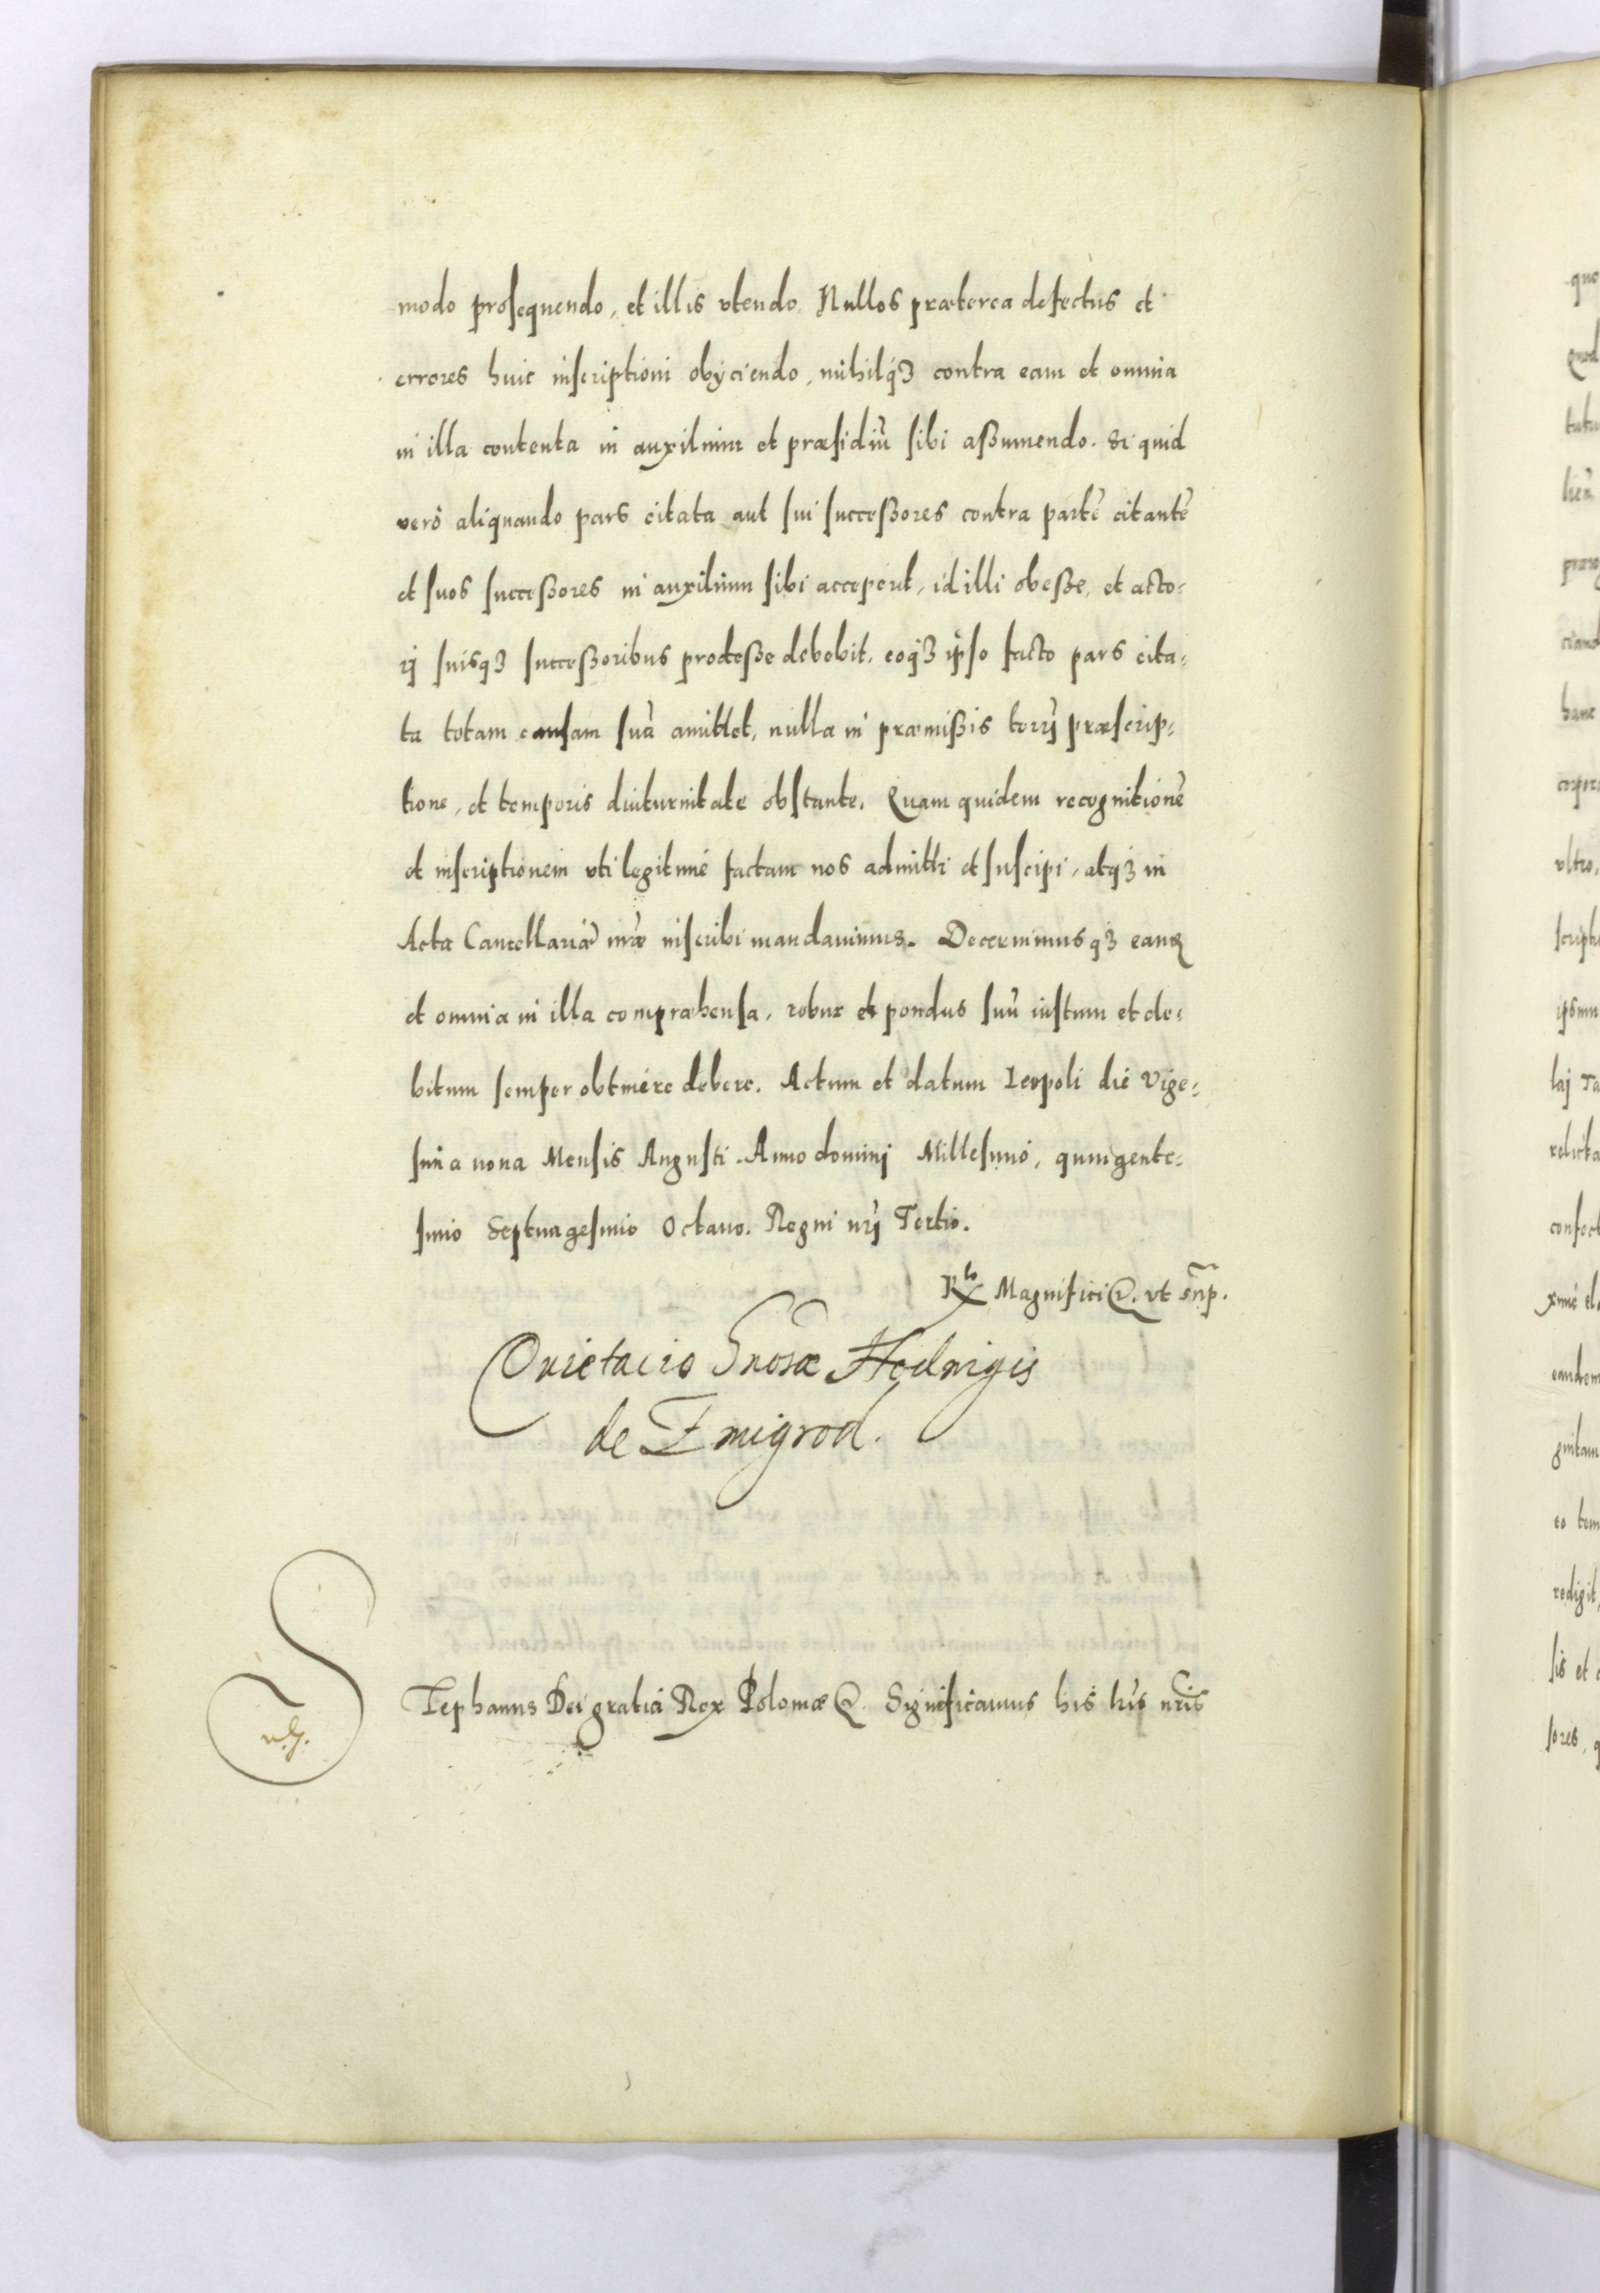 modo prosequendo, et illis vtendo. Nullos præterea defectus et
errores huic inscriptioni obÿciendo, nihilqꝫ contra eam et omnia
in illa contenta in auxilium et præsidiũ sibi aßumendo. Si quid
verò aliquando pars citata aut sui succeßores contra partẽ citantẽ
et suos succeßores in auxilium sibi acceperit, id illi obeße, et acto-
rj suisqꝫ succeßoribus prodeße debebit, eoqꝫ ipso facto pars cita-
ta totam causam suã amittet, nulla in præmißis terrj præscrip-
tione, et temporis diuturnitate obstante. Quam quidem recognitionẽ
et inscriptionem vti legitimè factam nos admitti et suscipi, atqꝫ in
Acta Cancellariæ nr̃æ inscribi mandauimus. Decernimusqꝫ eamq
et omnia in illa compræhensa, robur et pondus suũ iustum et de-
bitum semper obtinere debere. Actum et datum Leopoli die vige-
sima nona Mensis Augusti. Anno dominj Millesimo, quingente-
simo Septuagesimo Octauo. Regni nr̃j Tertio.
Rlõ Magnifici &. vt sup̃.
Quietacio Gnosæ Hedwigis
de Zmigrod.
STephanus Dei gratia Rex Poloniæ &. Significamus his lr̃is nr̃is